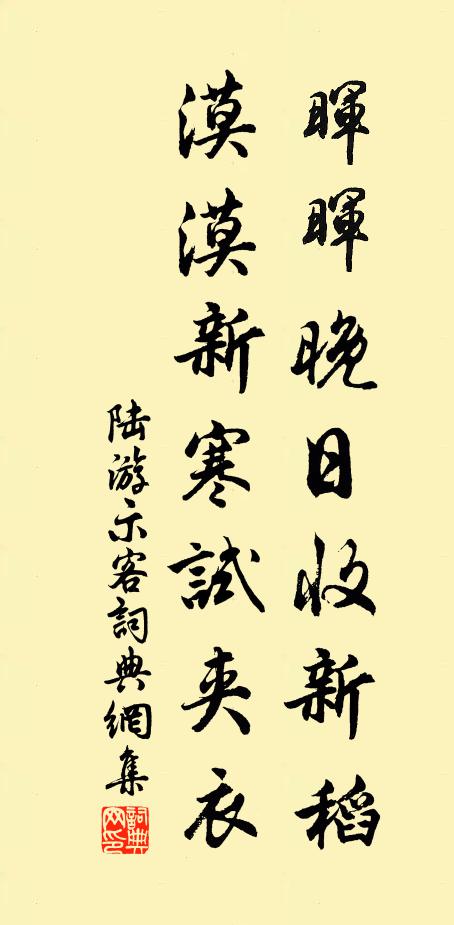 暉暉晚日收新稻
漠漠新寒試夾衣
陆游示客詞典網集
詞典网印